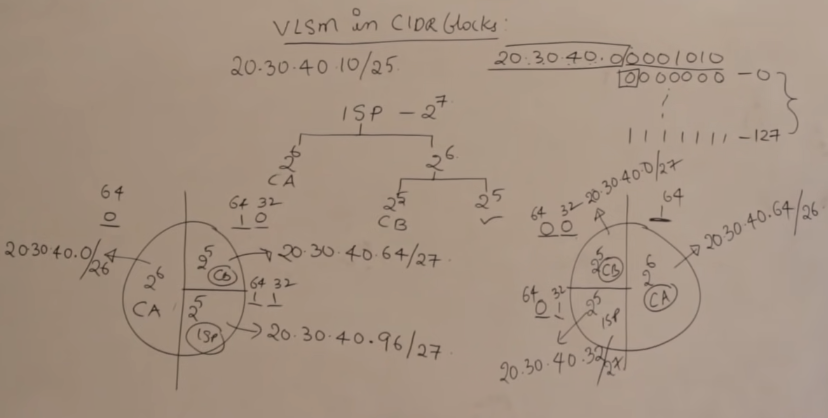 VLSM in CIDR Blocks:
20.30.40.10/25
20.30.40.00001010
0000000 - 0
1 1 1 1 1 1 1 - 127
ISP - 2^7
2^6
CA
2^6
2^5
CB
2^5
64
0
64 32
1 0
20 30 40.0/26
2^6
CA
2^5
CB
20.30.40.64/27
64 32
1 1
2^5
ISP
20.30.40.96/27
20.30.40.0/27
64 32
0 0
64
1
20.30.40.64/26
2^5
CB
2^6
CA
64 32
0 1
2^5
ISP
20.30.40.32/27